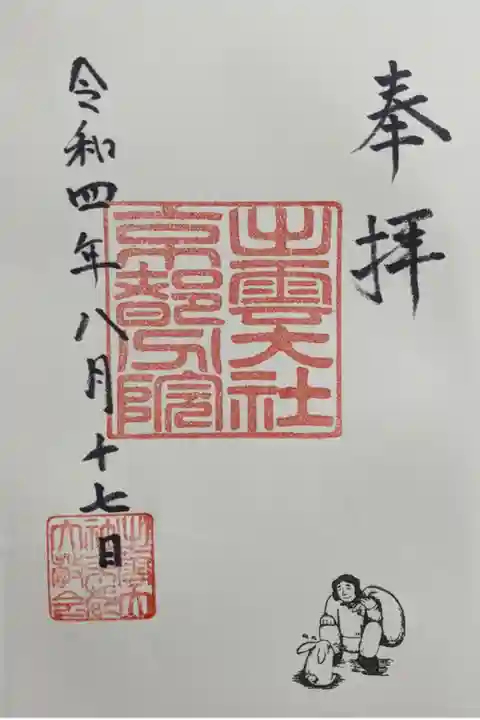 奉拝
出雲大社
京都分院
令和四年八月十七日